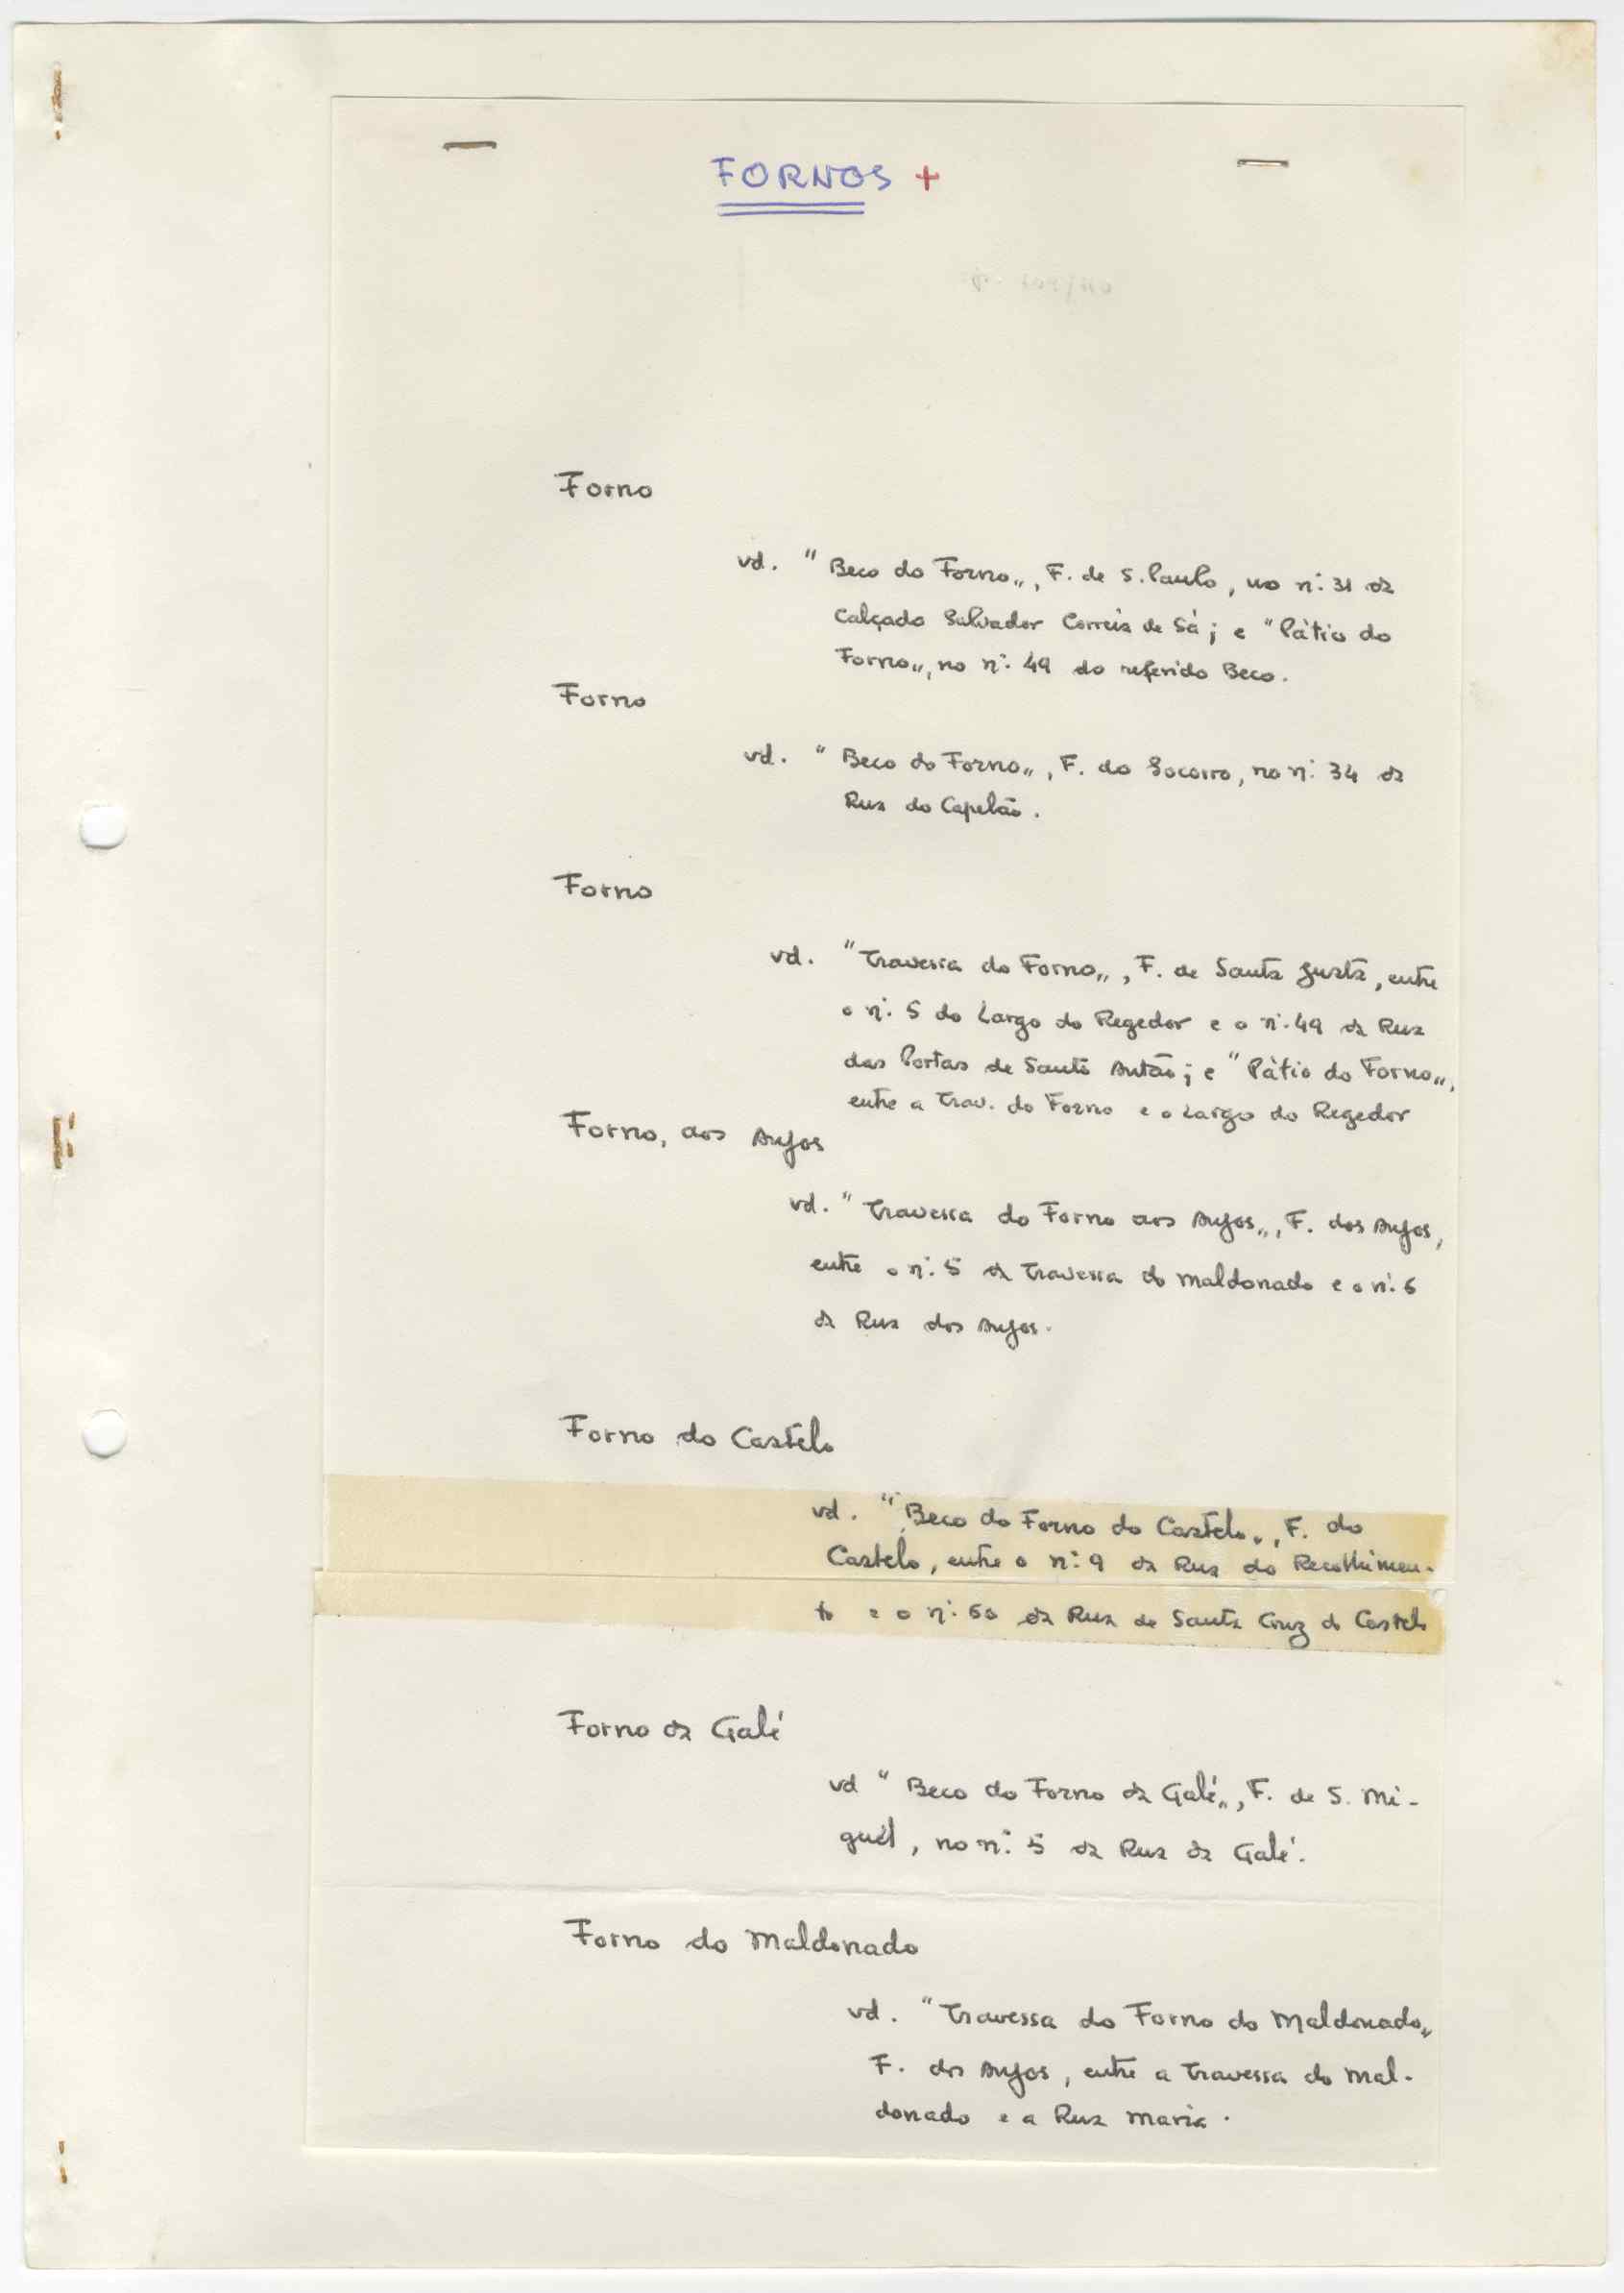 FORNOS +
Forno
vd. " Beco do Forno„, F. de S. Paulo, no n.º 31 da
Calçada Salvador Correia de Sá; e " Pátio do
Forno„, no n.º 49 do referido Beco.
Forno
vd. " Beco do Forno„, F. do Socorro, no n.º 34 da
Rua do Capelão.
Forno
vd. " Travessa do Forno„, F. de Santa Justa, entre
o n.º 5 do Largo do Regedor e o n.º 49 da Rua
das Portas de Santo Antão; e " Pátio do Forno„,
entre a Trav. do Forno e o Largo do Regedor
Forno, aos Anjos
vd. " Travessa do Forno aos Anjos„, F. dos Anjos,
entre o n.º 5 da Travessa do Maldonado e o n.º 6
da Rua dos Anjos.
Forno do Castelo
vd. " Beco do Forno do Castelo„, F. do
Castelo, entre o n.º 9 da Rua do Recolhimen-
to e o n.º 60 da Rua de Santa Cruz do Castelo
Forno da Galé
vd " Beco do Forno da Galé„, F. de S. Mi-
guel, no n.º 5 da Rua da Galé.
Forno do Maldonado
vd. " Travessa do Forno do Maldonado„
F. dos Anjos, entre a Travessa do Mal-
donado e a Rua Maria.